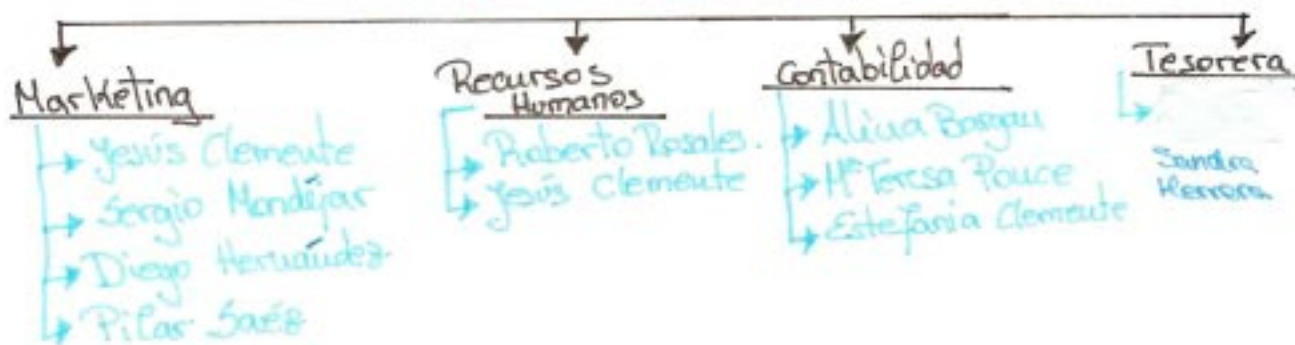 Marketing
Jesús Clemente
Sergio Mondéjar
Diego Hernández
Pilar Saéz
Recursos
Humanos
Roberto Rosales.
Jesús Clemente
Contabilidad
Alicia
Mª Teresa Ponce
Estefanía Clemente
Tesorera
Sandra
Herrera